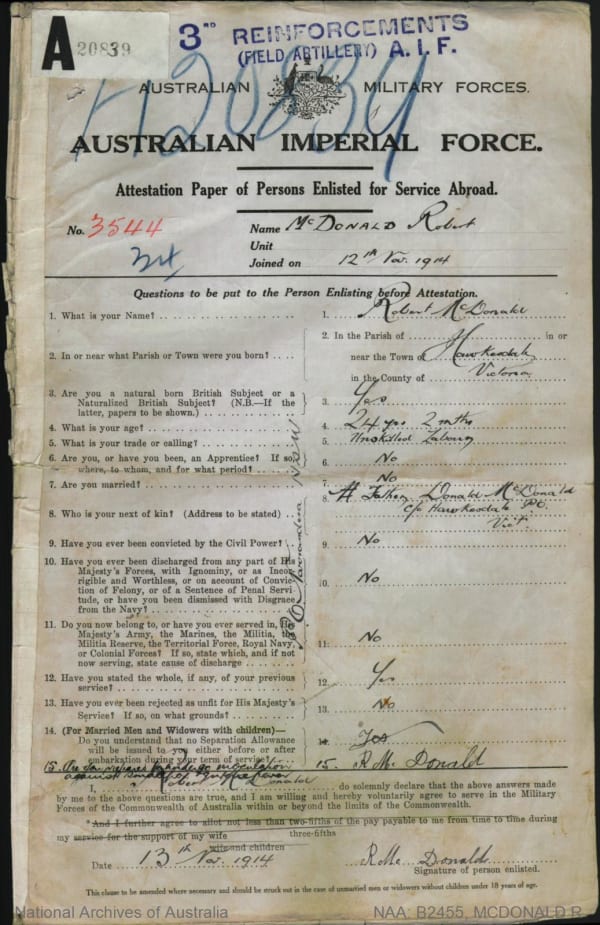 A 20839
3RD REINFORCEMENTS
(FIELD ARTILLERY) A.I.F.
AUSTRALIAN MILITARY FORCES.
AUSTRALIAN IMPERIAL FORCE.
Attestation Paper of Persons Enlisted for Service Abroad.
No. 3544 Name McDONALD Robert
Unit
Joined on 12th Nov. 1914
Questions to be put to the Person Enlisting before Attestation.
1. What is your Name? 1. Robert McDonald
2. In or near what Parish or Town were you born? 2. In the Parish of in or
near the Town of Hawkesdale
in the County of Victoria
3. Are you a natural born British Subject or a
Naturalized British Subject? (N.B.—If the
latter, papers to be shown.) 3. Yes
4. What is your age? 4. 24 yrs 2 mths
5. What is your trade or calling? 5. Unskilled Labour
6. Are you, or have you been, an Apprentice? If so,
where, to whom, and for what period? 6. No
7. Are you married? 7. No
8. Who is your next of kin? (Address to be stated) 8. Father Donald McDonald
c/o Hawkesdale PO.
Vict.
9. Have you ever been convicted by the Civil Power? 9. No
10. Have you ever been discharged from any part of His
Majesty's Forces, with Ignominy, or as Incor-
rigible and Worthless, or on account of Convic-
tion of Felony, or of a Sentence of Penal Servi-
tude, or have you been dismissed with Disgrace
from the Navy? 10. No
11. Do you now belong to, or have you ever served in, His
Majesty's Army, the Marines, the Militia, the
Militia Reserve, the Territorial Force, Royal Navy,
or Colonial Forces? If so, state which, and if not
now serving, state cause of discharge 11. No
12. Have you stated the whole, if any, of your previous
service? 12. Yes
13. Have you ever been rejected as unfit for His Majesty's
Service? If so, on what grounds? 13. No
14. (For Married Men and Widowers with children)—
Do you understand that no Separation Allowance
will be issued to you either before or after
embarkation during your term of service? 14. Yes
15. 15. R Mc Donald
I, Robert McDonald do solemnly declare that the above answers made
by me to the above questions are true, and I am willing and hereby voluntarily agree to serve in the Military
Forces of the Commonwealth of Australia within or beyond the limits of the Commonwealth.
*And I further agree to allot not less than two-fifths of the pay payable to me from time to time during
three-fifths
my service for the support of my wife
wife and children
Date 13th Nov. 1914 R Mc Donald
Signature of person enlisted.
This clause to be amended where necessary and should be struck out in the case of unmarried men or widowers without children under 18 years of age.
National Archives of Australia NAA: B2455, MCDONALD R